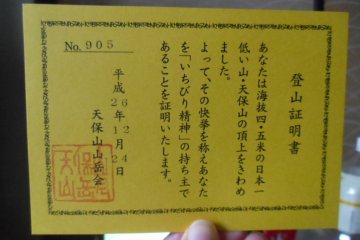 No. 905
登山証明書
あなたは海抜四・五米の日本一
低い山・天保山の頂上をきわめ
ました。
よって、その快挙を称えあなた
を「いちびり精神」の持ち主で
あることを証明いたします。
平成26年12月24日
天保山山岳会
天保山山岳会